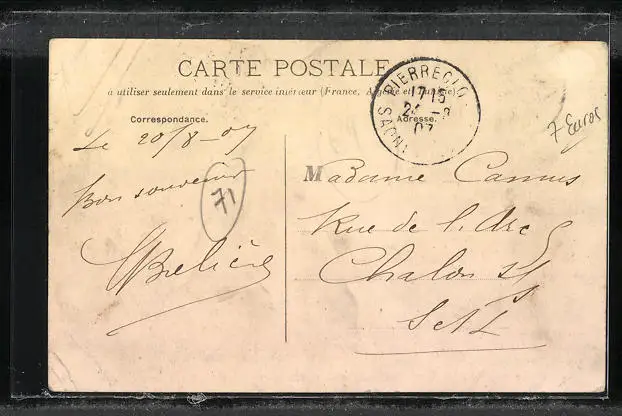 CARTE POSTALE
à utiliser seulement dans le service intérieur (France, Algérie et Tunisie)
Correspondance.
Adresse.
PIERRECLO
17 15
SAÔNE
07
7 Euros
Le 20/8-07
Bon souvenir
71
Madame Camus
Rue de l'Arc 5
Chalon s/
S et L